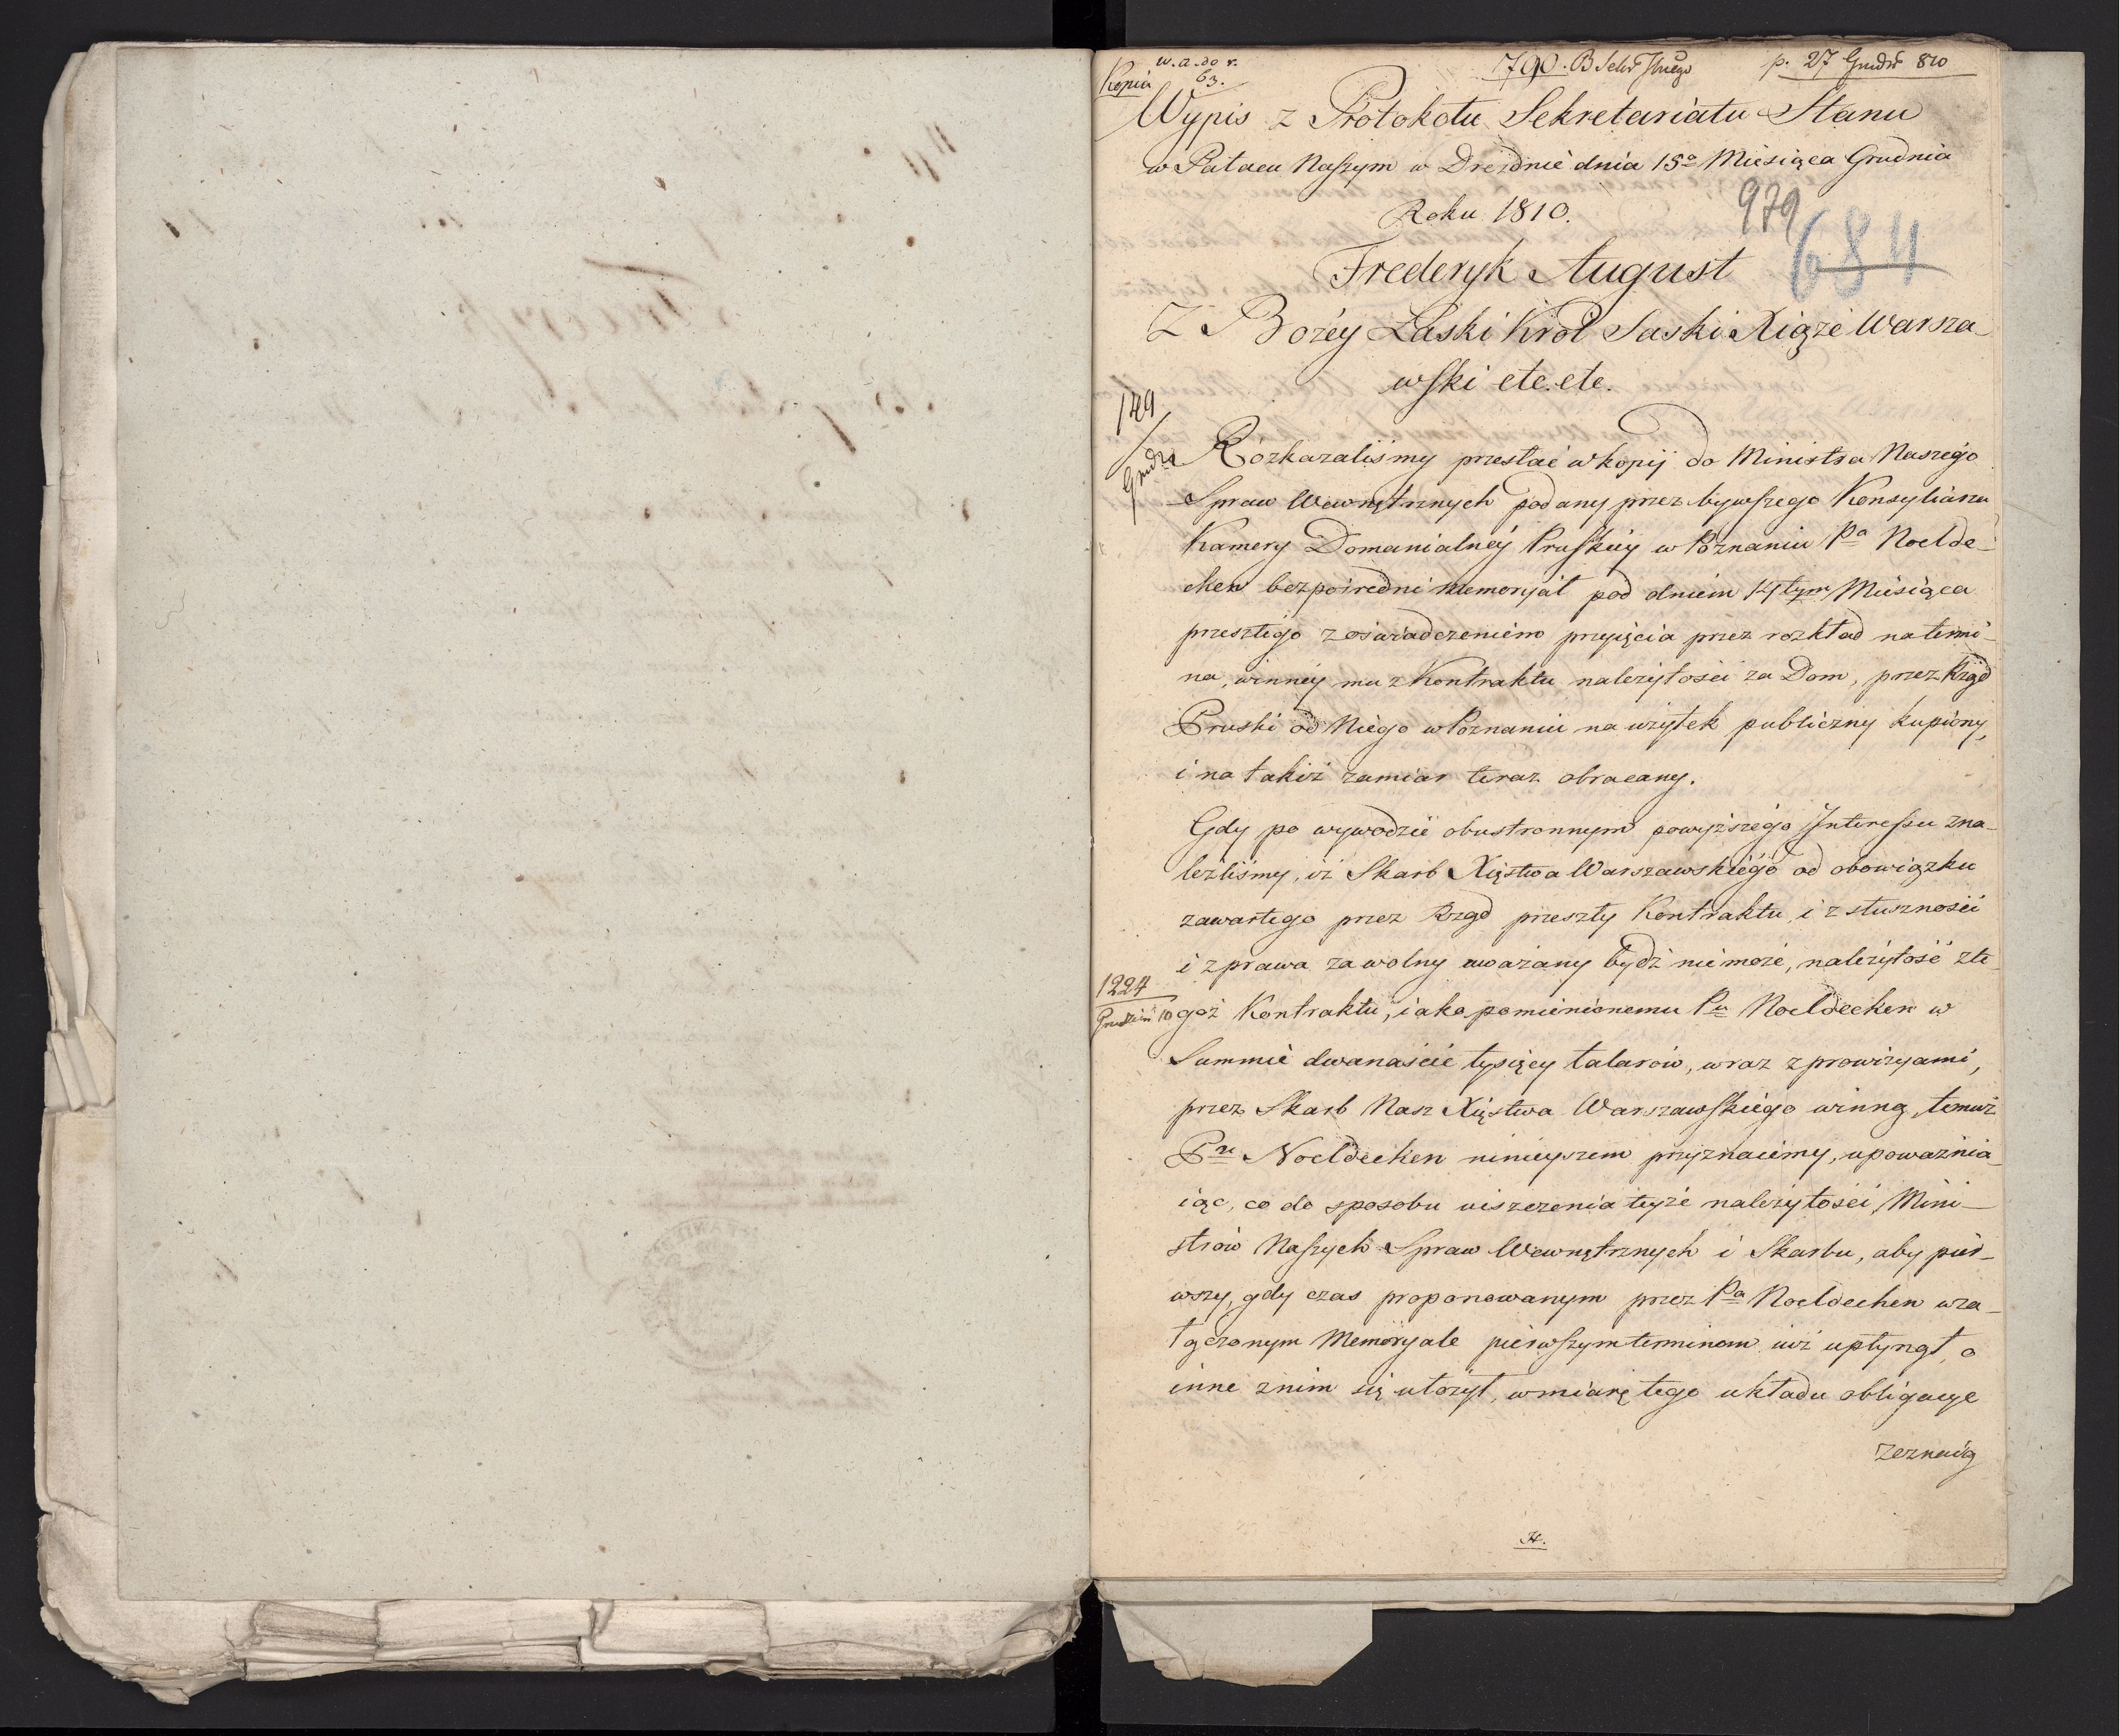 w. a. do r.
Kopia 63.
790. B
p. 27 Grudń 810
Wypis z Protokołu Sekretariatu Stanu
w Pałacu Naszym w Dreźdnie dnia 15º Miesiąca Grudnia
Roku 1810.
979
684
Frederyk August
Z Bożéy Łaski Król Saski Xiąże Warsza-
wski etc. etc.
149
Grudz
Rozkazaliśmy przesłać w kopij do Ministra Naszego
Spraw Wewnętrznych podany przez bywszego Konsyliarza
Kamery Domanialnéy Pruskiey w Poznaniu Pa Noelde-
chen bezpośredni memoryał pod dniem 14tym Miesiąca
przeszłego z oświadczeniem przyięcia przez rozkład na termi-
na, winney mu z Kontraktu należytości za Dom, przez Rząd
Pruski od Niego w Poznaniu na użytek publiczny kupiony,
i na takiż zamiar teraz obracany.
Gdy po wywodzie obustronnym powyższego Interessu zna-
leźliśmy, iż Skarb Xięstwa Warszawskiégo od obowiązku
zawartego przez Rząd przeszły Kontraktu, i z słuszności
i z prawa za wolny uważany bydź nie może, należytość z te-
1224
Grudzień 10
goż Kontraktu, iako pomienionemu Pu Noeldechen w
Summie dwanaście tysięcy talarów, wraz z prowizyami,
przez Skarb Nasz Xięstwa Warszawskiégo winną, temuż
Pu Noeldechen ninieyszem przyznaiemy, upoważnia-
iąc, co do sposobu uiszczenia teyże należytości, Mini-
strów Naszych Spraw Wewnętrznych i Skarbu, aby pier-
wszy, gdy czas proponowanym przez Pa Noeldechen w za-
łączonym Memoryale pierwszym terminom iuż upłynął, o
inne z nim się ułożył, w miarę tego układu obligacye
zeznaią
H.